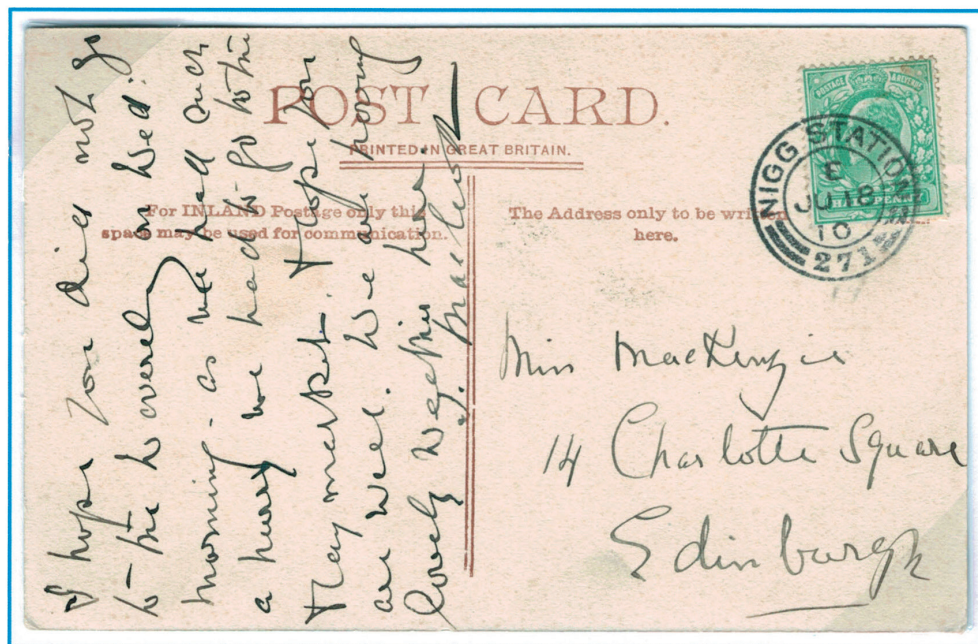 POST CARD.
PRINTED IN GREAT BRITAIN.
For INLAND Postage only this
space may be used for communication.
The Address only to be written
here.
POSTAGE & REVENUE
PENNY
NIGG STATION
E
JU 18
10
271
I hope you did not go
to the Waverley on Wed:
morning - as we had such
a hurry we had to go to the
Haymarket. I hope you
are well. We are having
lovely weather here
Miss MacKenzie
14 Charlotte Square
Edinburgh